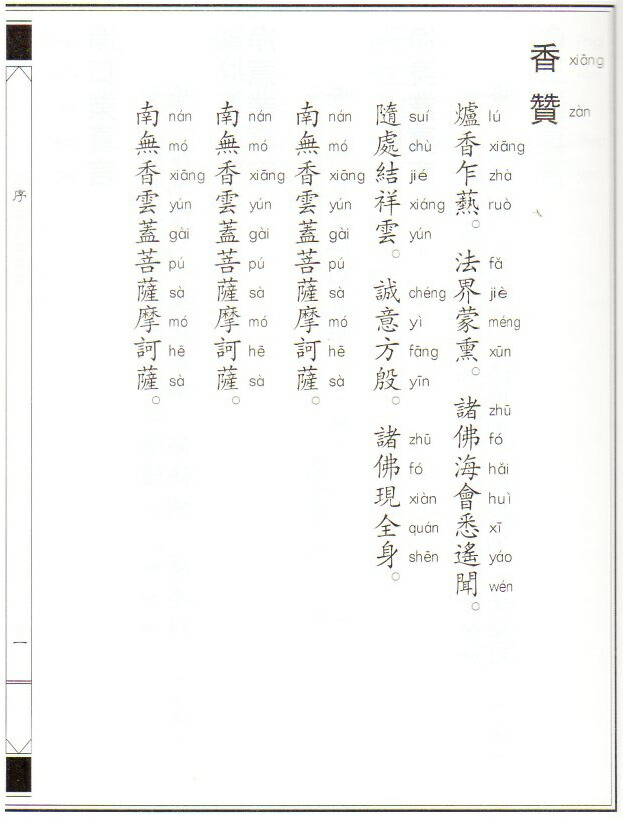 香贊
xiāng zàn
爐香乍爇。法界蒙熏。諸佛海會悉遙聞。
lú xiāng zhà ruò fǎ jiè méng xūn zhū fó hǎi huì xī yáo wén
隨處結祥雲。誠意方殷。諸佛現全身。
suí chù jié xiáng yún chéng yì fāng yīn zhū fó xiàn quán shēn
南無香雲蓋菩薩摩訶薩。
nán mó xiāng yún gài pú sà mó hē sà
南無香雲蓋菩薩摩訶薩。
nán mó xiāng yún gài pú sà mó hē sà
南無香雲蓋菩薩摩訶薩。
nán mó xiāng yún gài pú sà mó hē sà
序
一